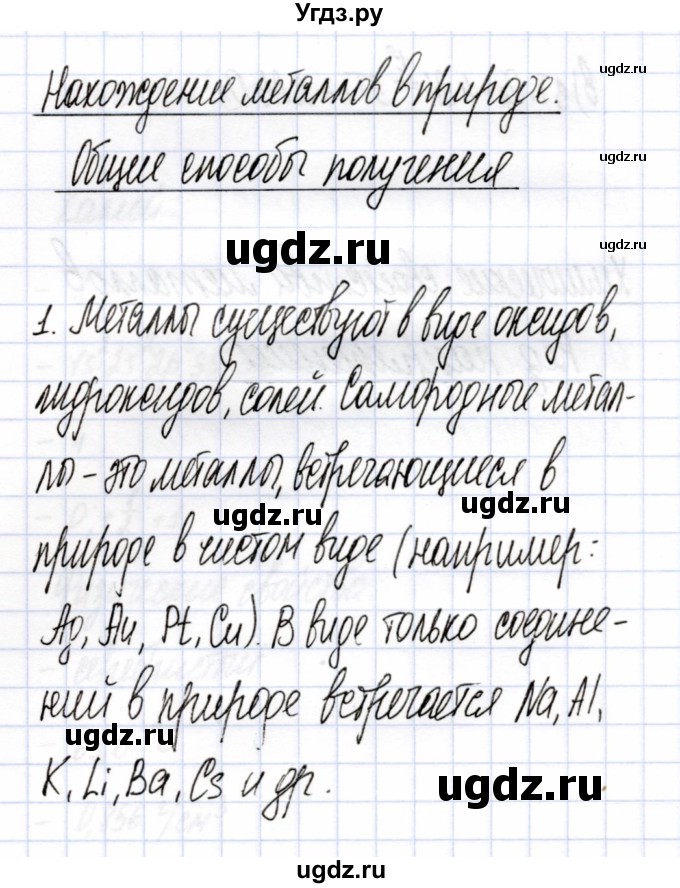 Угдз.ру
ugdz.ru
Нахождение металлов в природе.
ugdz.ru
Общие способы получения
ugdz.ru
ugdz.ru
1. Металлы существуют в виде оксидов,
гидроксидов, солей. Самородные метал-
ugdz.ru
лы - это металлы, встречающиеся в
ugdz.ru
ugdz.ru
природе в чистом виде (например:
Ag, Au, Pt, Cu). В виде только соедине-
ний в природе встречается Na, Al,
ugdz.ru
K, Li, Ba, Cs и др.
ugdz.ru
ugdz.ru